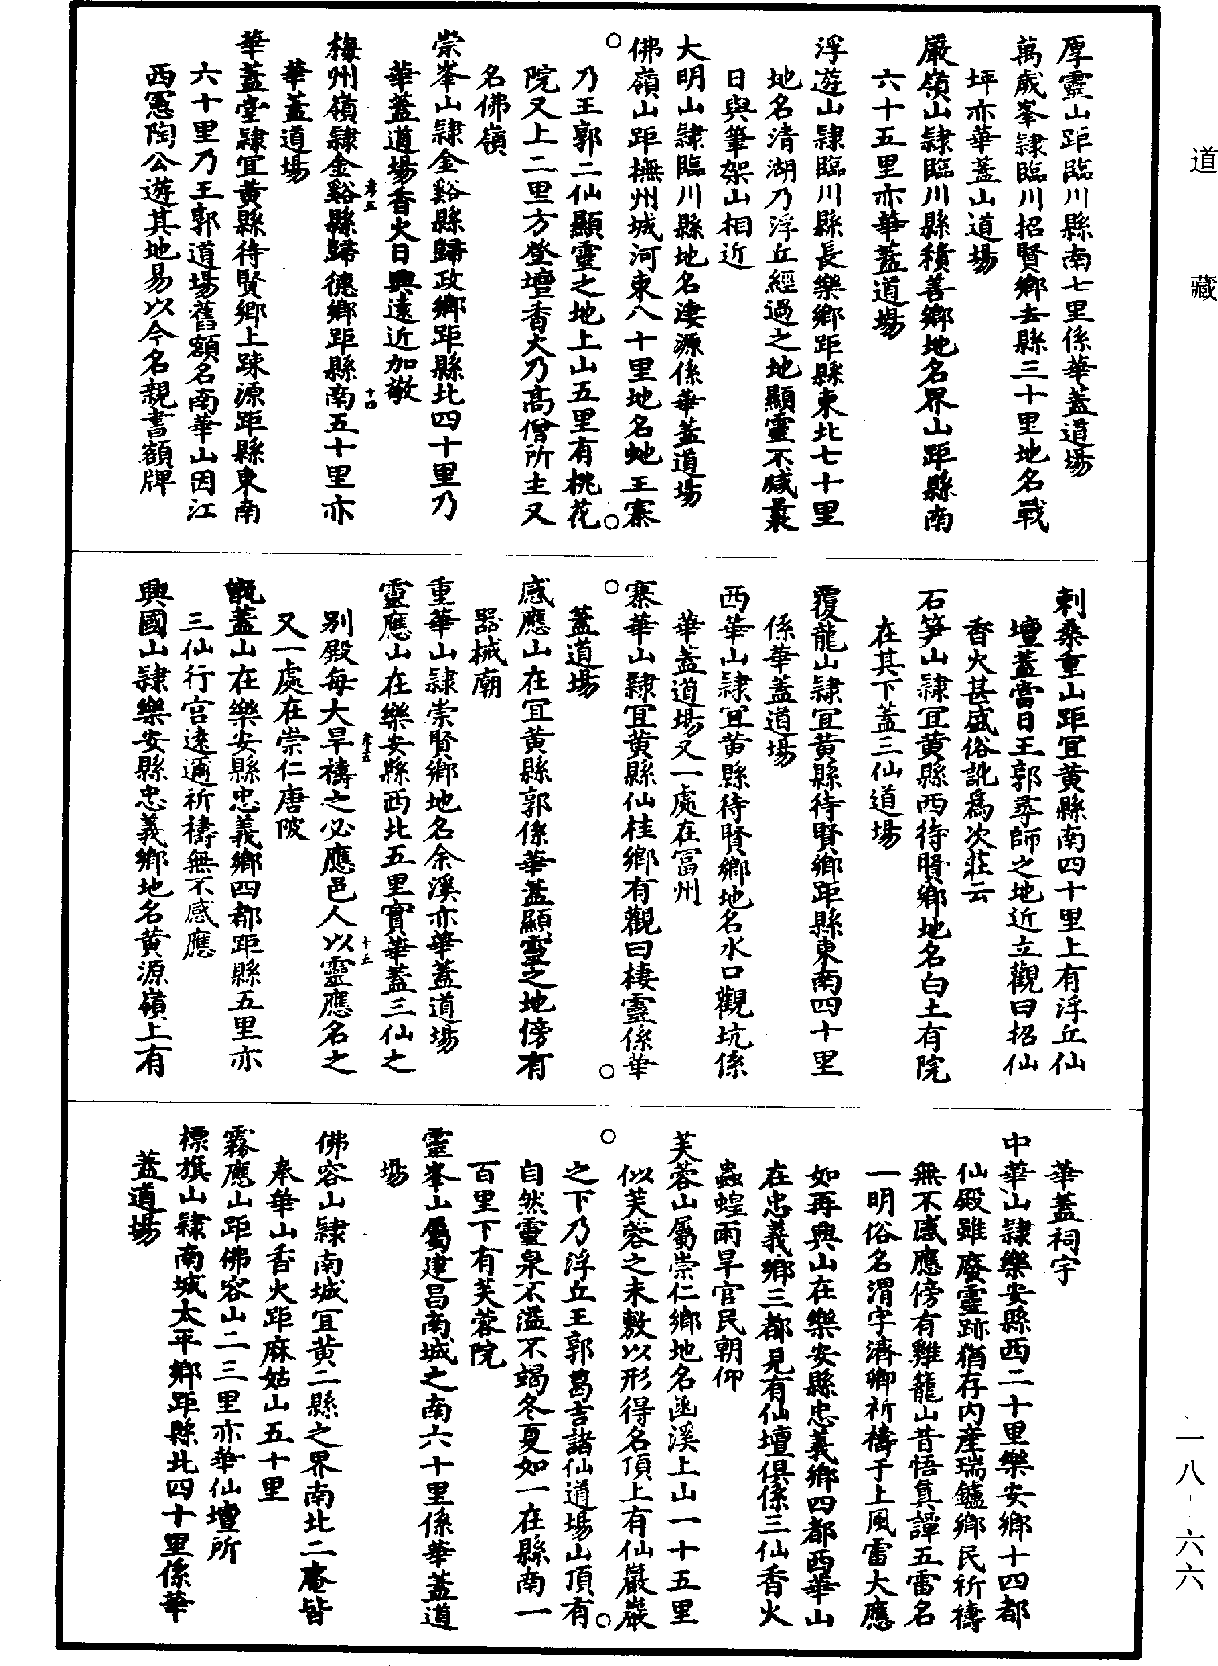 道藏
厚靈山距臨川縣南七里係華蓋道場
萬歲峯隷臨川招賢鄉去縣三十里地名戰
坪亦華蓋山道場
嚴嶺山隷臨川縣積善鄉地名界山距縣南
六十五里亦華蓋道場
浮遊山隷臨川縣長樂鄉距縣東北七十里
地名清湖乃浮丘經過之地顯靈不減叢
日與筆架山相近
大明山隷臨川縣地名淒源係華蓋道場
佛嶺山距撫州城河東八十里地名虵王寨
乃王郭二仙顯靈之地上山五里有桃花
院又上二里方登壇香火乃高僧所主又
名佛嶺
崇峯山隷金谿縣歸政鄉距縣北四十里乃
華蓋道場香火日興遠近加敬
卷五
十四
梅州嶺隷金谿縣歸德鄉距縣南五十里亦
華蓋道場
華蓋臺隷宜黃縣待賢鄉上踈源距縣東南
六十里乃王郭道場舊額名南華山因江
西憲陶公遊其地易以今名親書額牌
刺桑重山距宜黃縣南四十里上有浮丘仙
壇蓋當日王郭尋師之地近立觀曰招仙
香火甚盛俗訛爲次莊云
石笋山隷宜黃縣西待賢鄉地名白土有院
在其下蓋三仙道場
覆龍山隷宜黃縣待賢鄉距縣東南四十里
係華蓋道場
西華山隷宜黃縣待賢鄉地名水口觀坑係
華蓋道場又一處在富州
寨華山隷宜黃縣仙桂鄉有觀曰棲靈係華
蓋道場
感應山在宜黃縣郭係華蓋顯靈之地傍有
器械廟
重華山隷崇賢鄉地名余溪亦華蓋道場
靈應山在樂安縣西北五里實華蓋三仙之
卷五
十五
別殿每大旱禱之必應邑人以靈應名之
又一處在崇仁唐陂
甑蓋山在樂安縣忠義鄉四都距縣五里亦
三仙行宮遠邇祈禱無不感應
興國山隷樂安縣忠義鄉地名黃源嶺上有
華蓋祠宇
中華山隷樂安縣西二十里樂安鄉十四都
仙殿雖廢靈跡猶存內産瑞鑪鄉民祈禱
無不感應傍有雞籠山昔悟真譚五雷名
一明俗名渭字濟卿祈禱于上風雷大應
如再興山在樂安縣忠義鄉四都西華山
在忠義鄉三都見有仙壇俱係三仙香火
蟲蝗雨旱官民朝仰
芙蓉山屬崇仁鄉地名凾溪上山一十五里
似芙蓉之未敷以形得名頂上有仙巖巖
之下乃浮丘王郭葛吉諸仙道場山頂有
自然靈泉不溢不竭冬夏如一在縣南一
百里下有芙蓉院
靈峯山屬建昌南城之南六十里係華蓋道
場
佛容山隷南城宜黃二縣之界南北二庵皆
奉華山香火距麻姑山五十里
霧應山距佛容山二三里亦華仙壇所
標旗山隷南城太平鄉距縣北四十里係華
蓋道場
一八-六六